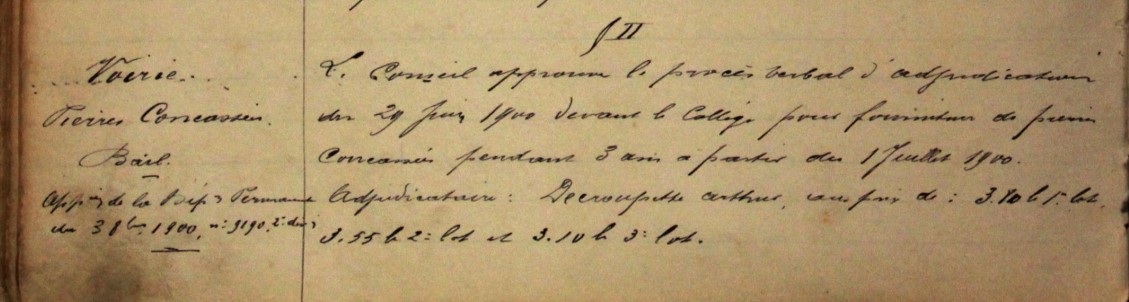 § II
Voirie.
Pierres Concassées.
Bail.
App. on de la Dép. on Permante
du 3 8bre 1900, n: 9190, 2e don
Le Conseil approuve le procès verbal d'adjudication
du 29 Juin 1900 devant le Collège pour fourniture de pierres
Concassées pendant 3 ans à partir du 1 Juillet 1900.
Adjudicataire : Decroupette arthur, au prix de : 3.80 le 1r lot,
3.55 le 2e lot et 3.10 le 3e lot.